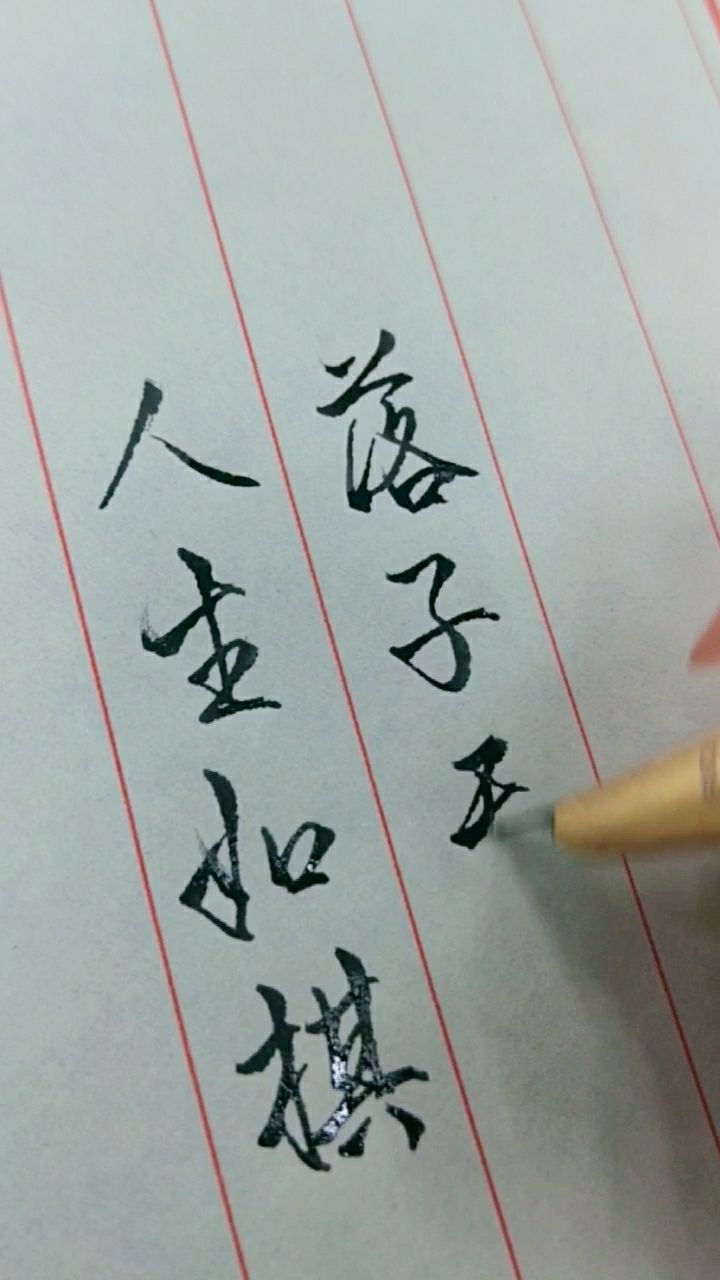 人生如棋
落子